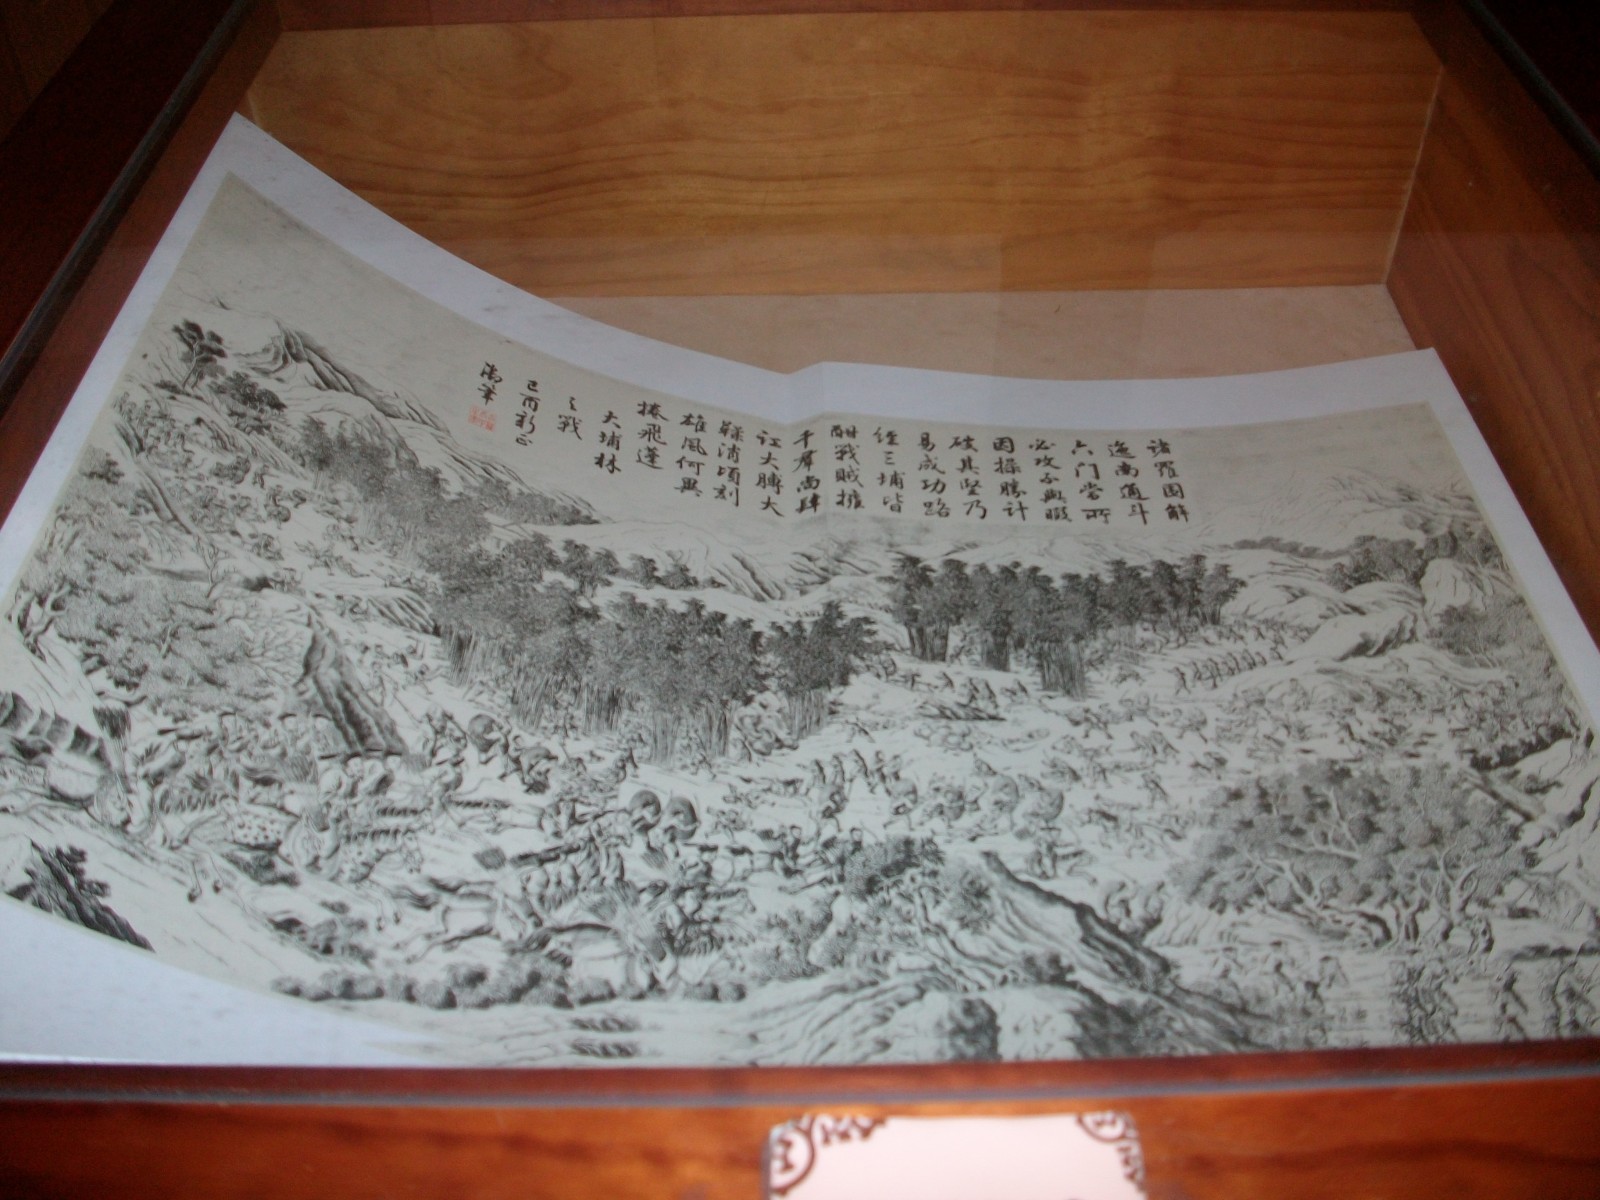 諸羅圍解
迤南道斗
六門當所
必攻不與暇
因採勝計
破其堅乃
易成功路
經三埔皆
酣戰賊擁
千群尚肆
訌大膊大
鞣清頃刻
雄風何異
捲飛蓬
大埔林
之戰
己酉新正
御筆